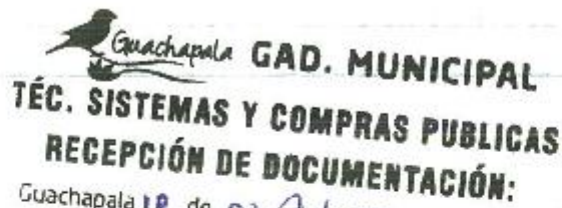 Guachapala GAD. MUNICIPAL
TÉC. SISTEMAS Y COMPRAS PUBLICAS
RECEPCIÓN DE DOCUMENTACIÓN:
Guachapala 18 de